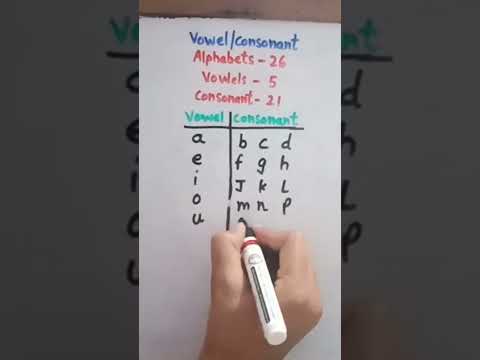 Vowel/consonant
Alphabets - 26
Vowels - 5
Consonant - 21
Vowel consonant
a b c d
e f g h
i J k L
o m n p
u